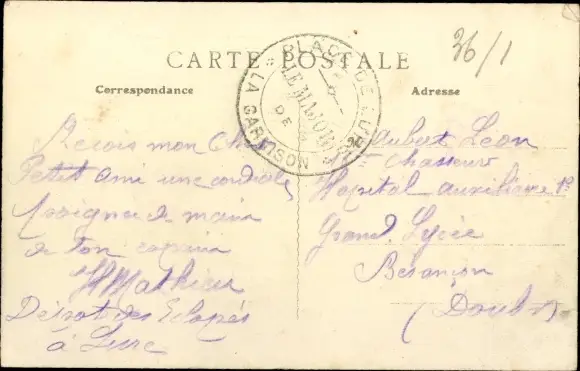 26/1
CARTE POSTALE
Correspondance
Adresse
PLACE DE LURE
LE MAJOR
DE
LA GARNISON
Recois mon Cher
Petit ami une cordiale
Poignée de main
de ton copain
H Mathieu
Dépot des Eclopés
à Lure
Aubert Léon
Chasseur
Hopital auxiliaire
Grand Lycée
Besançon
(Doubs)